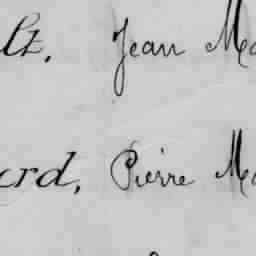 ltz, Jean Ma
erd, Pierre Ma